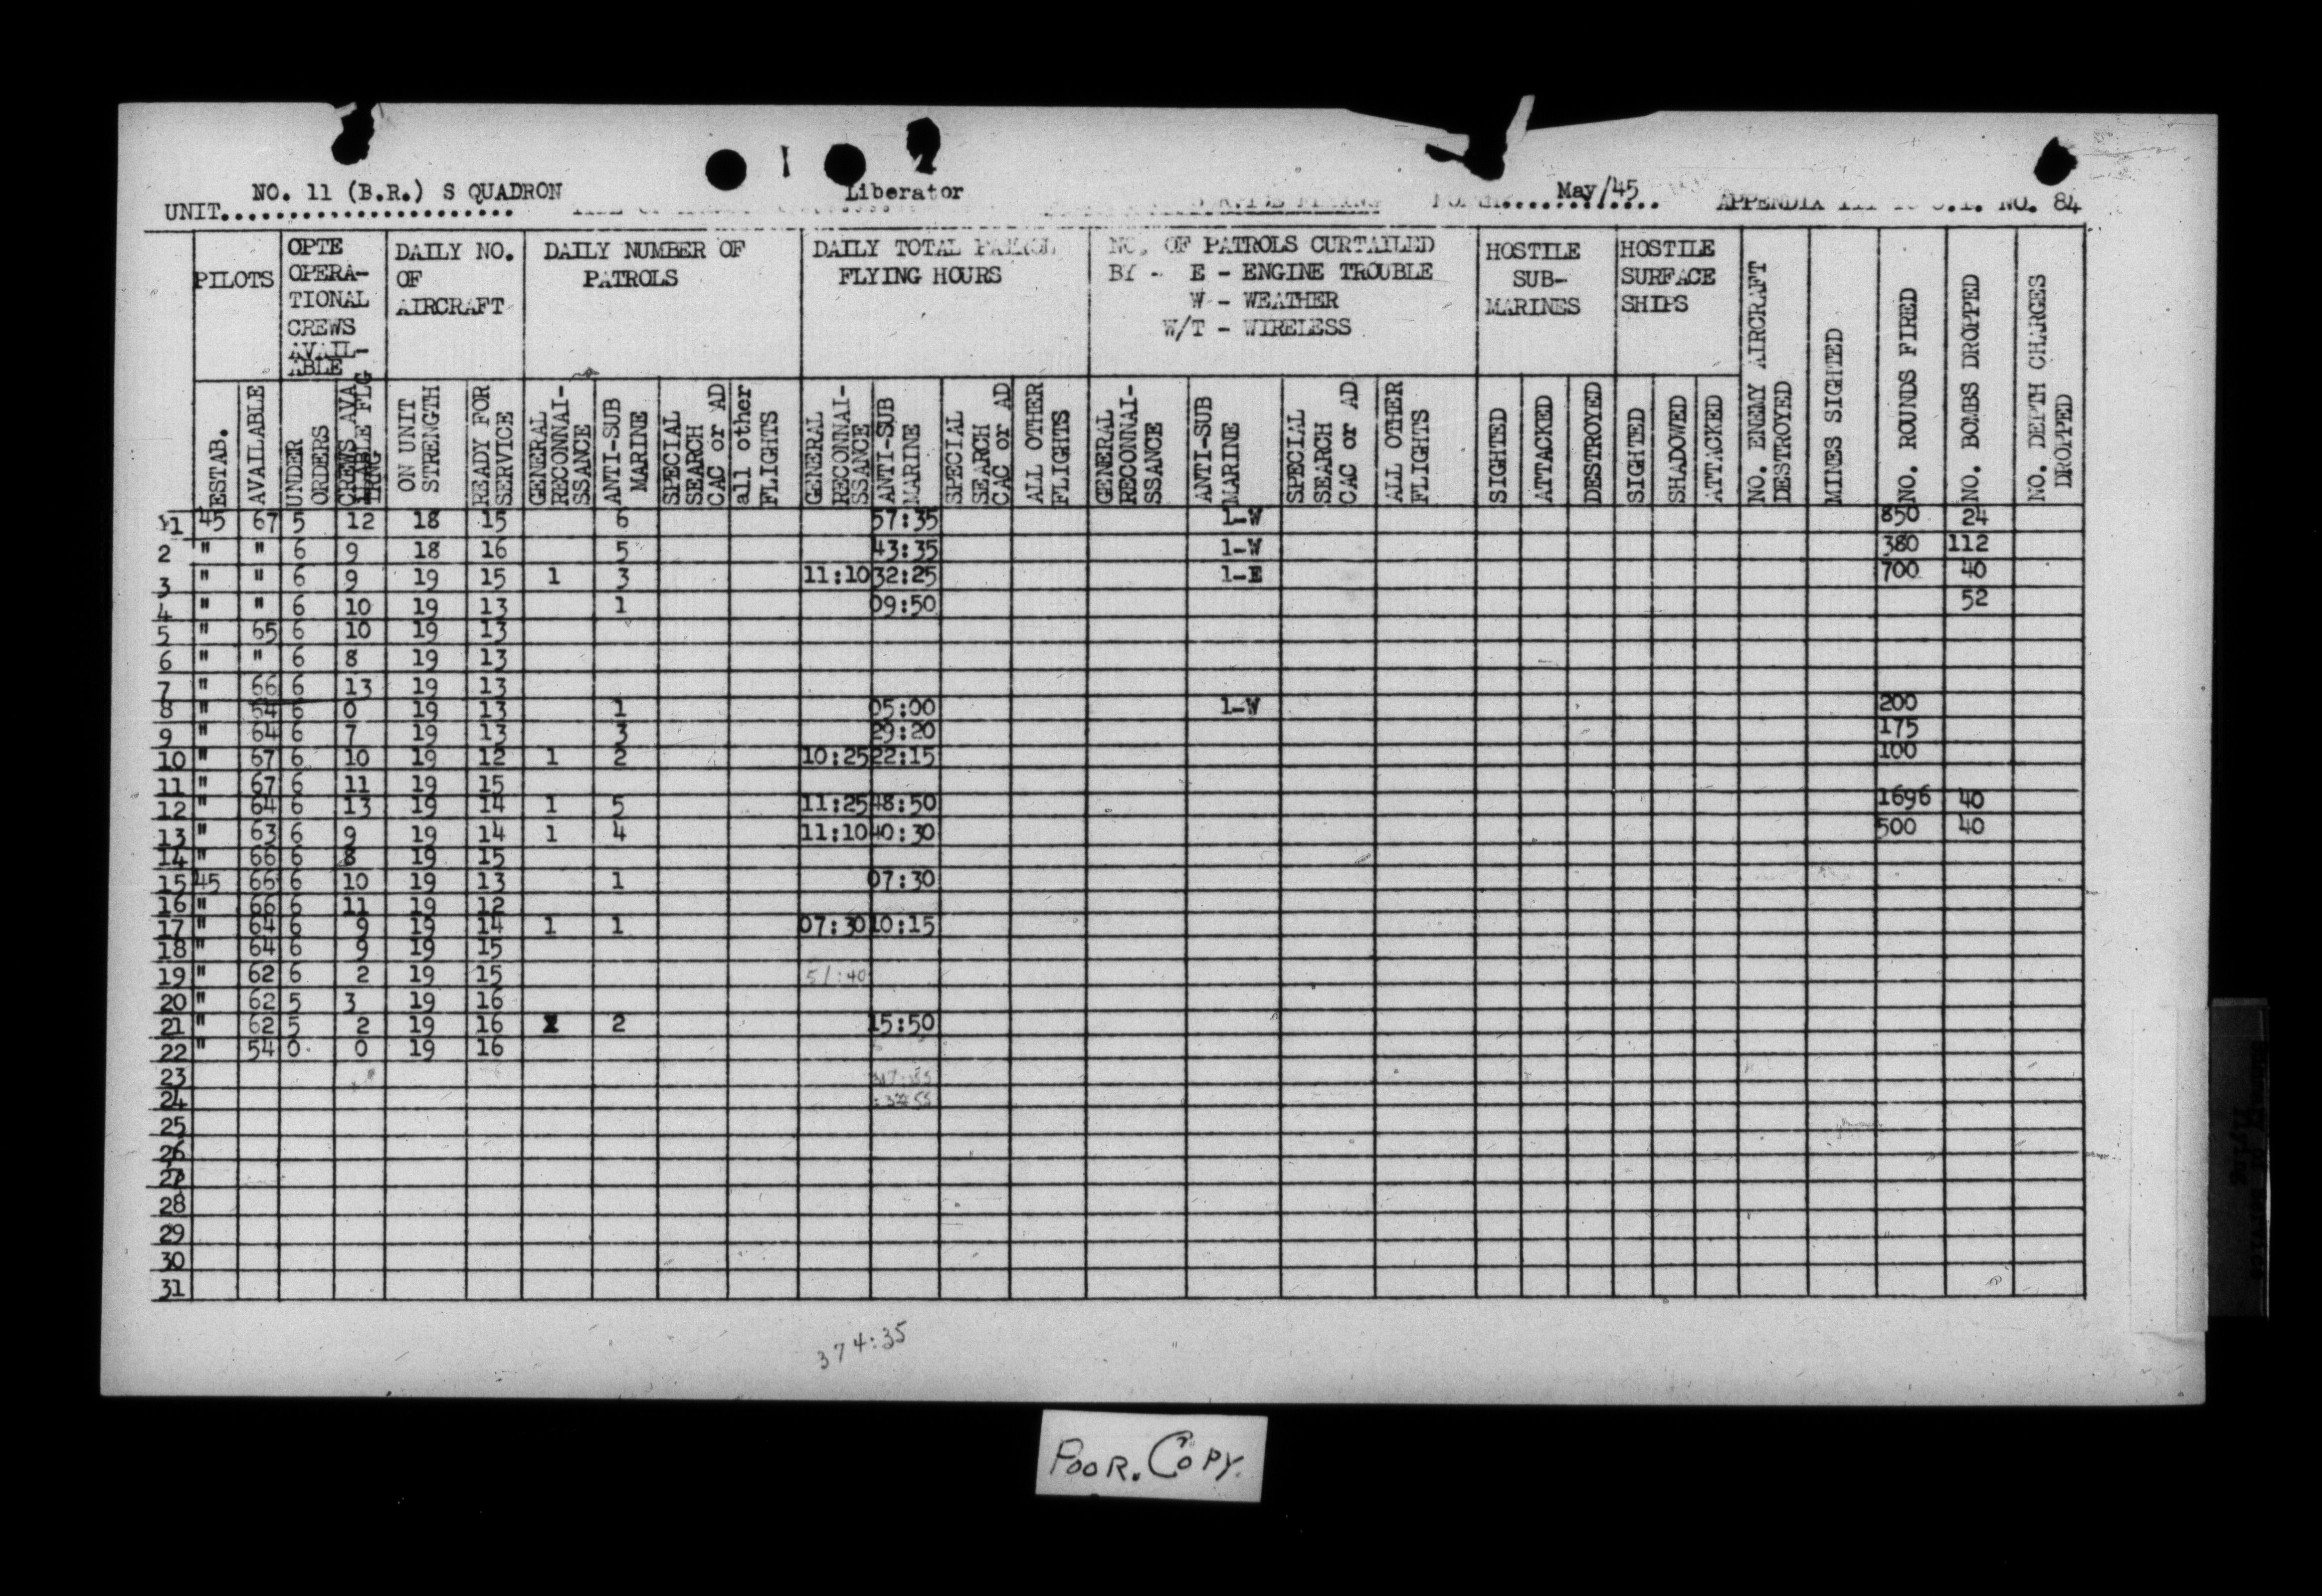 NO. 11 (B.R.) S QUADRON
Liberator
May/45
UNIT
APPENDIX NO. 84
PILOTS
OPTE
OPERA-
TIONAL
CREWS
AVAIL-
ABLE
DAILY NO.
OF
AIRCRAFT
DAILY NUMBER OF
PATROLS
DAILY TOTAL PATROL
FLYING HOURS
NO. OF PATROLS CURTAILED
BY - E - ENGINE TROUBLE
W - WEATHER
W/T - WIRELESS
HOSTILE
SUB-
MARINES
HOSTILE
SURFACE
SHIPS
NO. ENEMY AIRCRAFT
DESTROYED
MINES SIGHTED
NO. ROUNDS FIRED
NO. BOMBS DROPPED
NO. DEPTH CHARGES
DROPPED
ESTAB.
AVAILABLE
UNDER
ORDERS
CREWS AVA
ILABLE FLG
TRNG
ON UNIT
STRENGTH
READY FOR
SERVICE
GENERAL
RECONNAI-
SSANCE
ANTI-SUB
MARINE
SPECIAL
SEARCH
CAC or AD
all other
FLIGHTS
GENERAL
RECONNAI-
SSANCE
ANTI-SUB
MARINE
SPECIAL
SEARCH
CAC or AD
ALL OTHER
FLIGHTS
GENERAL
RECONNAI-
SSANCE
ANTI-SUB
MARINE
SPECIAL
SEARCH
CAC or AD
ALL OTHER
FLIGHTS
SIGHTED
ATTACKED
DESTROYED
SIGHTED
SHADOWED
ATTACKED
1 45 67 5 12 18 15 6 57:35 1-W 850 24
2 " " 6 9 18 16 5 43:35 1-W 380 112
3 " " 6 9 19 15 1 3 11:10 32:25 1-E 700 40
4 " " 6 10 19 13 1 09:50 52
5 " 65 6 10 19 13
6 " " 6 8 19 13
7 " 66 6 13 19 13
8 " 54 6 0 19 13 1 05:00 1-W 200
9 " 64 6 7 19 13 3 29:20 175
10 " 67 6 10 19 12 1 2 10:25 22:15 100
11 " 67 6 11 19 15
12 " 64 6 13 19 14 1 5 11:25 48:50 1696 40
13 " 63 6 9 19 14 1 4 11:10 40:30 500 40
14 " 66 6 8 19 15
15 45 66 6 10 19 13 1 07:30
16 " 66 6 11 19 12
17 " 64 6 9 19 14 1 1 07:30 10:15
18 " 64 6 9 19 15
19 " 62 6 2 19 15 51:40
20 " 62 5 3 19 16
21 " 62 5 2 19 16 2 15:50
22 " 54 0 0 19 16
23
24
25
26
27
28
29
30
31
374:35
POOR. COPY.